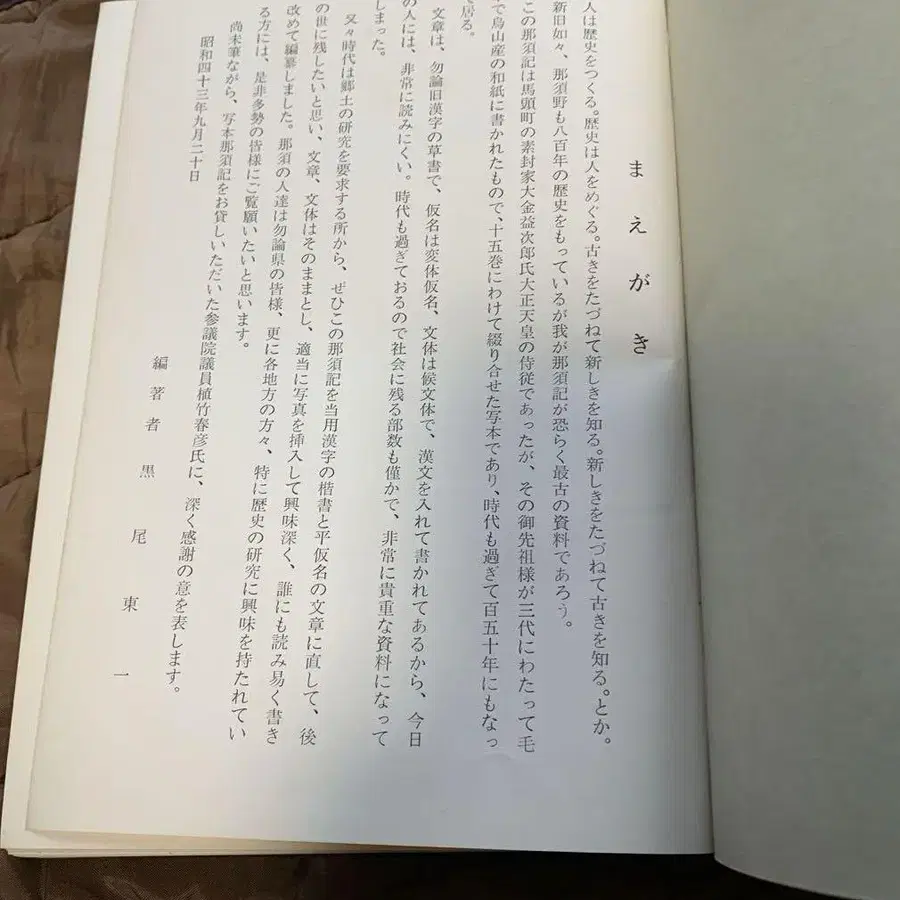 まえがき
人は歴史をつくる。歴史は人をめぐる。古きをたづねて新しきを知る。新しきをたづねて古きを知る。とか。
新旧如々、那須野も八百年の歴史をもっているが我が那須記が恐らく最古の資料であろう。
この那須記は馬頭町の素封家大金益次郎氏大正天皇の侍従であったが、その御先祖様が三代にわたって毛
で烏山産の和紙に書かれたもので、十五巻にわけて綴り合せた写本であり、時代も過ぎて百五十年にもなっ
て居る。
文章は、勿論旧漢字の草書で、仮名は変体仮名、文体は候文体で、漢文を入れて書かれてあるから、今日
の人には、非常に読みにくい。時代も過ぎておるので社会に残る部数も僅かで、非常に貴重な資料になって
しまった。
又々時代は郷土の研究を要求する所から、ぜひこの那須記を当用漢字の楷書と平仮名の文章に直して、後
の世に残したいと思い、文章、文体はそのままとし、適当に写真を挿入して興味深く、誰にも読み易く書き
改めて編纂しました。那須の人達は勿論県の皆様、更に各地方の方々、特に歴史の研究に興味を持たれてい
る方には、是非多勢の皆様にご覧願いたいと思います。
尚末筆ながら、写本那須記をお貸しいただいた参議院議員植竹春彦氏に、深く感謝の意を表します。
昭和四十三年九月二十日
編著者 黒尾東一